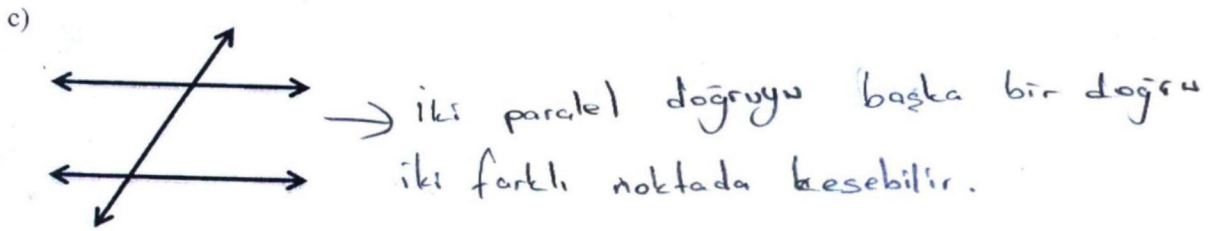 c)
→ iki paralel doğruyu başka bir doğru
iki farklı noktada kesebilir.